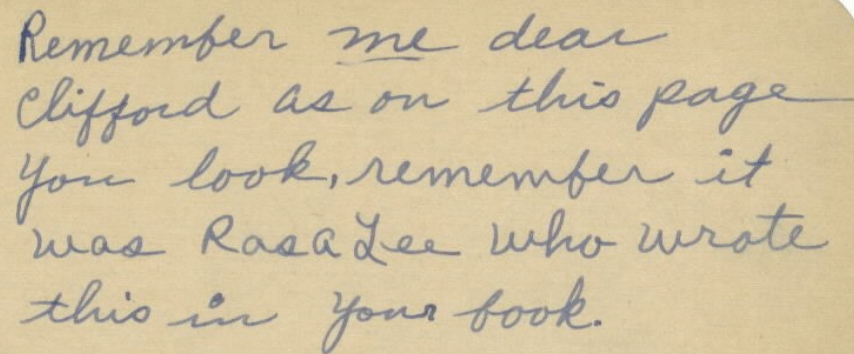 Remember me dear
Clifford as on this page
you look, remember it
was RasaLee who wrote
this in your book.